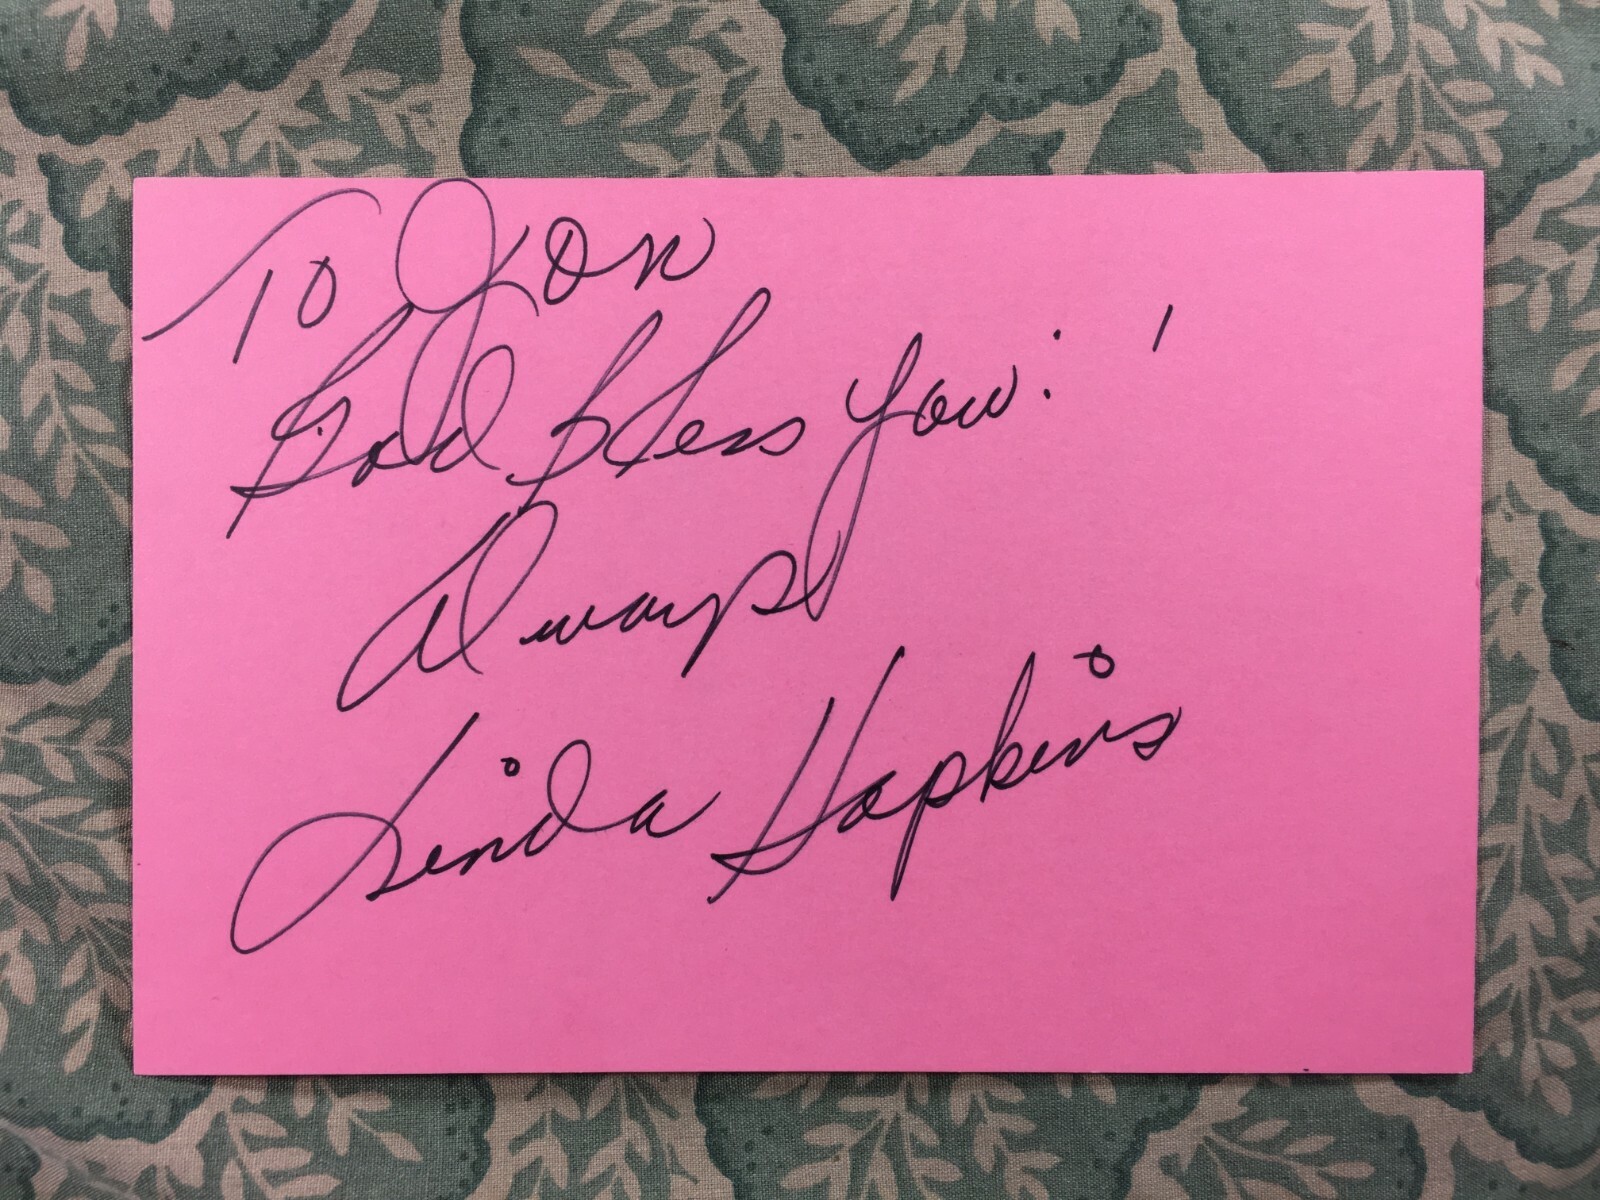 To Jon
God Bless You!
Always
Linda Hopkins